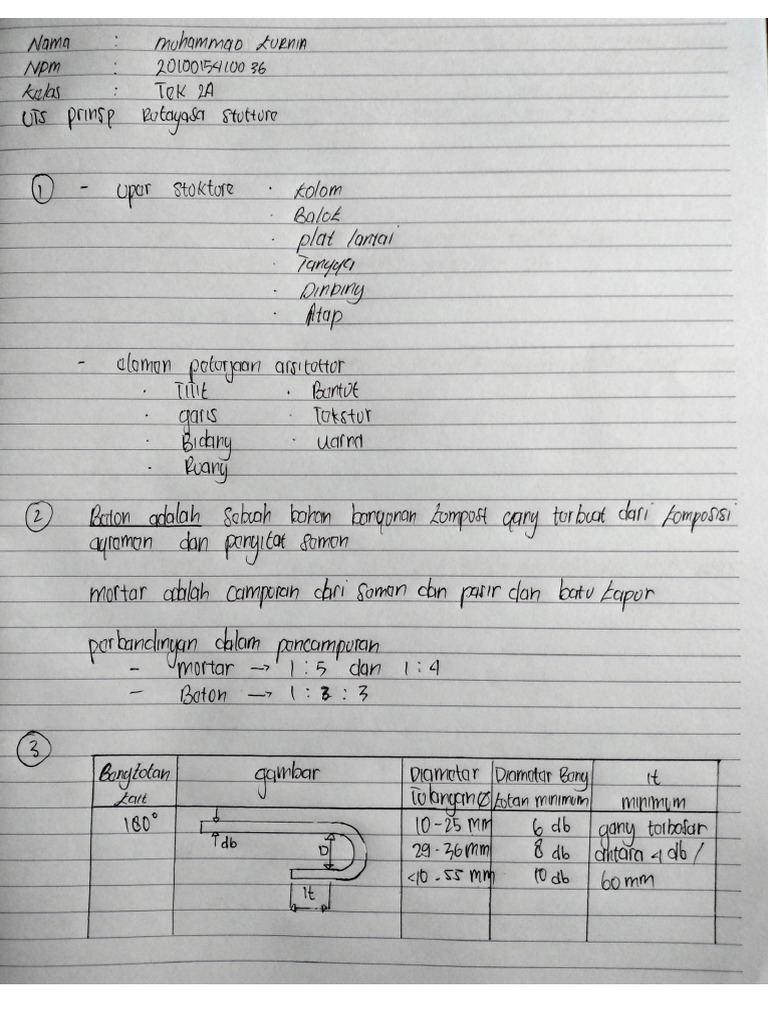 Nama : Muhammad Kurnia
NPM : 2010015410036
Kelas : TEK 2A
UTS Prinsp Rekayasa Stukture
① - Upper Stokture · Kolom
· Balok
· plat lantai
· Tangga
· Dinding
· Atap
- elemen pekerjaan arsitektor
· Titik · Bentuk
· garis · Tekstur
· Bidang · warna
· Ruang
② Beton adalah sebuah bahan bangunan kompost yang terbuat dari komposisi
agreman dan pengikat semen
mortar adalah campuran dari semen dan pasir dan batu kapor
perbandingan dalam pencampuran
- mortar → 1 : 5 dan 1 : 4
- Beton → 1 : 3 : 3
③
Bengkokan kait | gambar | Diameter Tulangan Ø | Diameter Beng kokan minimum | lt minimum
180° | db D lt | 10-25 mm | 6 db | yang terbesar
29-36 mm | 8 db | antara 4 db /
<10-55 mm | 10 db | 60 mm